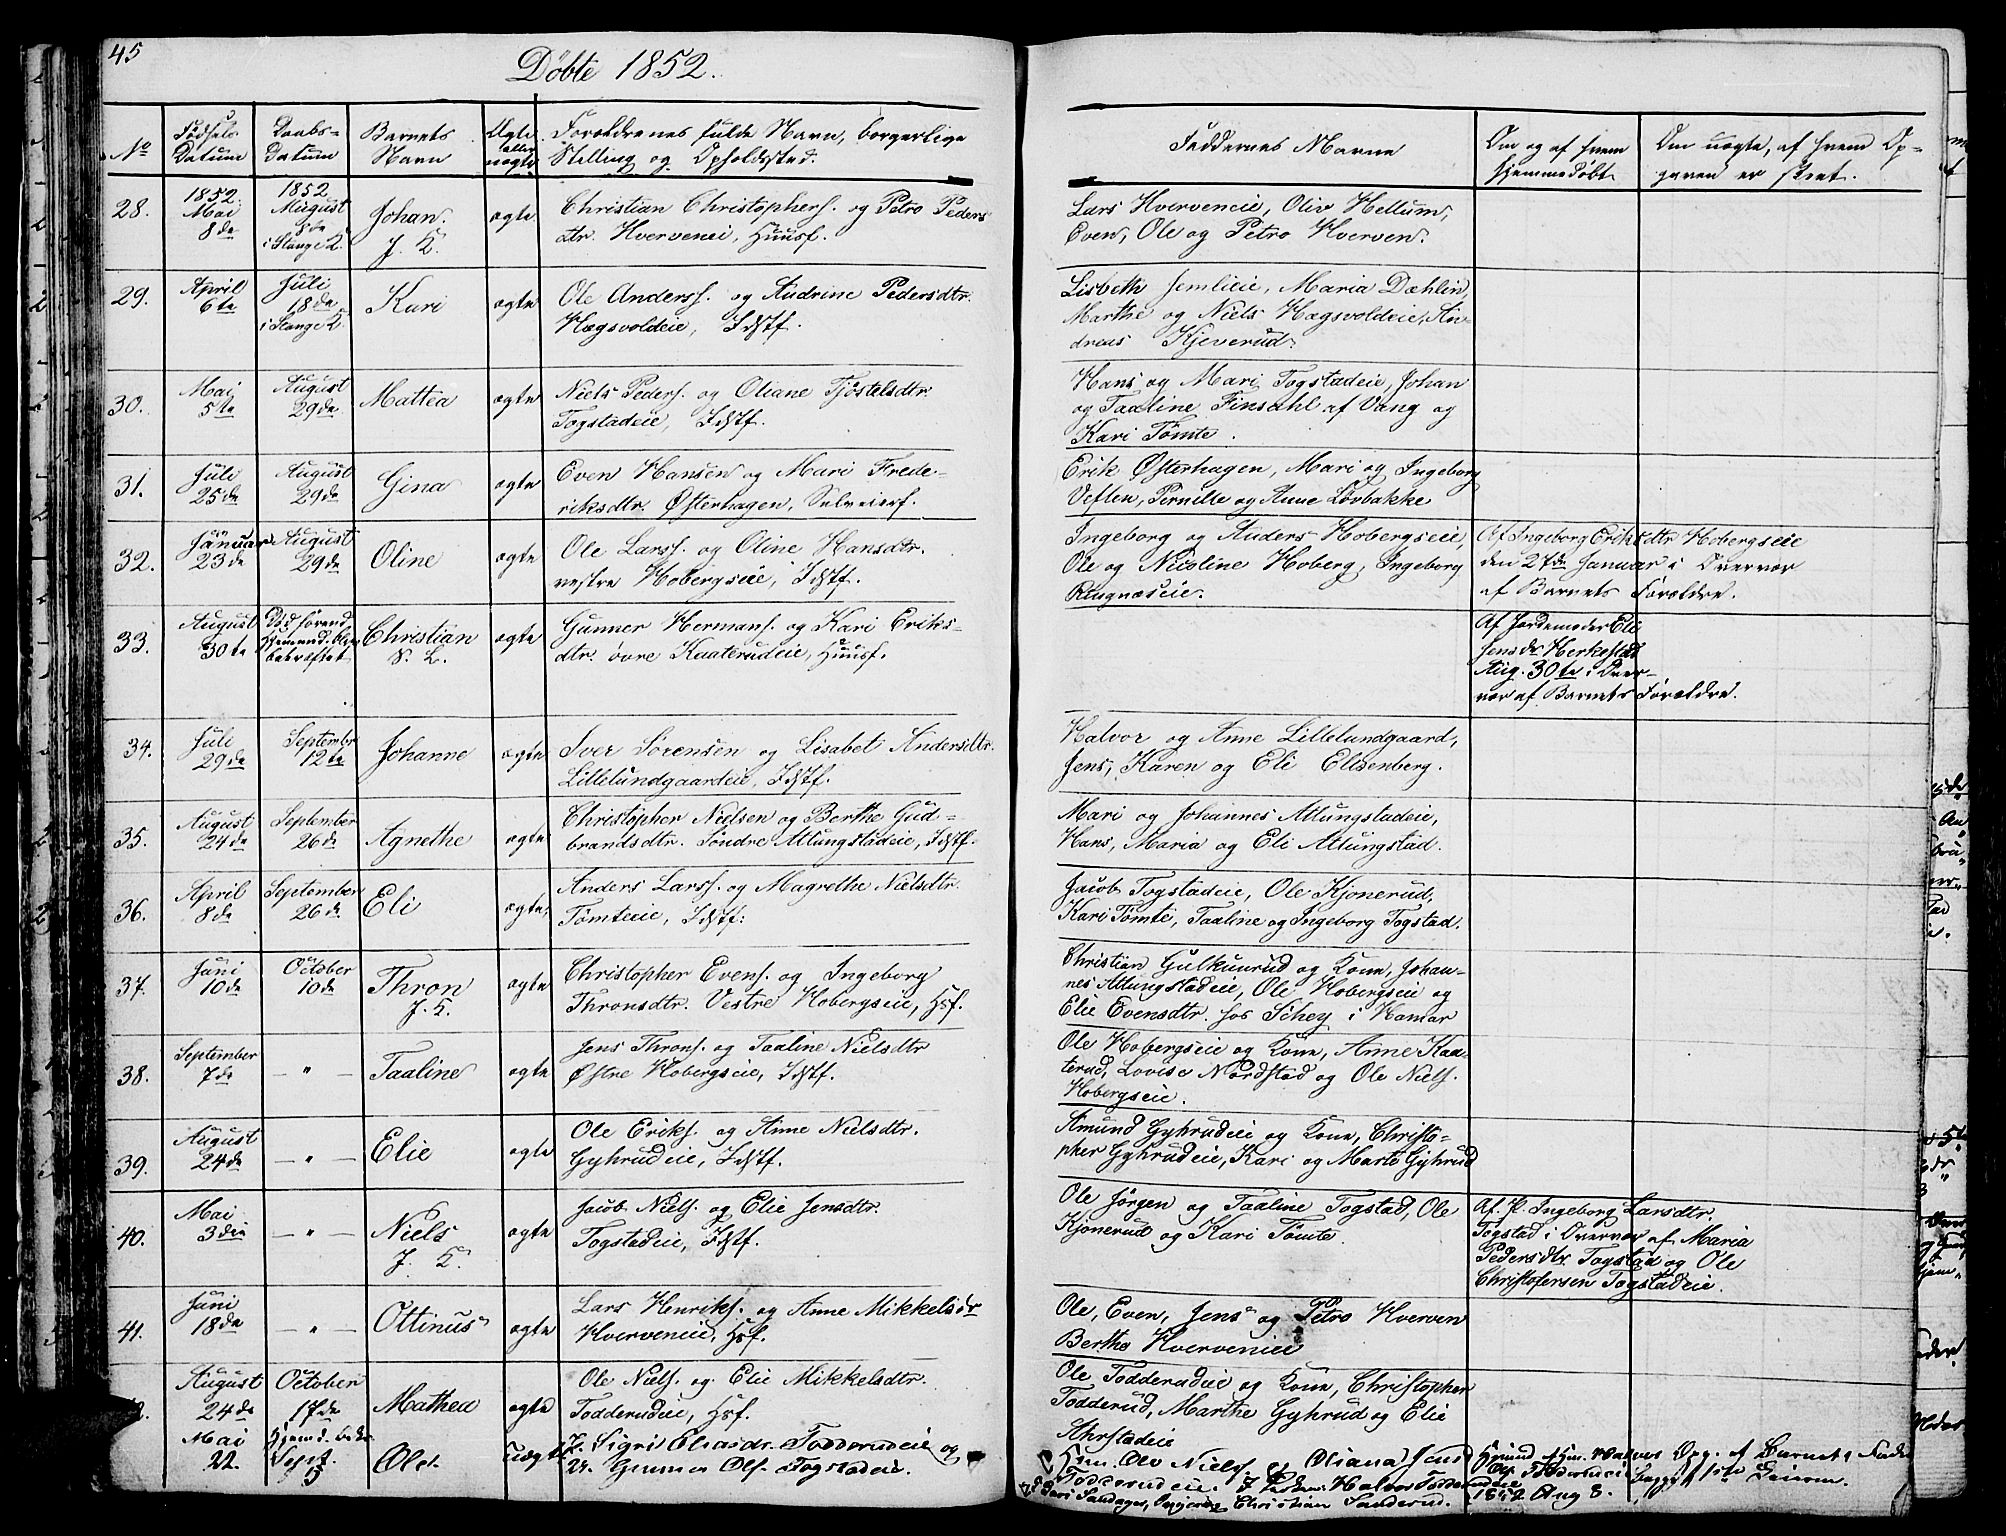 45
Døbte 1852.
No
Fødsels Datum
Daabs- Datum
Barnets Navn
Ægte eller uægte
Forældrenes fulde Navn, borgerlige
Stilling og Opholdssted.
Faddernes Navne
Om og af hvem
hjemmedøbt
Om uægte, af hvem Op-
gaven er skeet.
28.
1852. Mai 8de
1852 August 8de i Stange K.
Johan. J. K.
ægte
Christian Christophers. og Petro Peders
dtr. Hverveneie, Huusf.
Lars Hverveneie, Oliv Hellum,
Even, Ole og Petro Hverven.
29.
April 6te
Juli 18de i Stange K
Kari
ægte
Ole Anders. og Andrine Pedersdtr.
Hægsvoldeie, Idstf.
Lisbeth Jemlieie, Maria Dæhlin,
Marthe og Niels Hægsvoldeie, An-
dreas Kjeverud.
30.
Mai 5te
August 29de
Mattea
ægte
Niels Peders. og Oliane Tjøstelsdtr.
Togstadeie, Idstf.
Hans og Mari Togstadeie, Johan
og Taaline Finsahl af Vang og
Kari Tømte.
31.
Juli 25de
August 29de
Gina
ægte
Even Hansen og Mari Frede-
riksdtr. Østerhagen, Selveierf.
Erik Østerhagen, Mari og Ingeborg
Veflen, Pernille og Anne Løvbakke
32.
Januar 23de
August 29de
Oline
ægte
Ole Larss. og Oline Hansdtr.
vestre Hobergseie, Idstf.
Ingeborg og Anders Hobergseie,
Ole og Nicoline Hoberg, Ingeborg
Ringnæseie.
Af Ingeborg Eriksdtr Hobergseie
den 27de Januar i Overvær
af Barnets Forældre.
33.
August 30te
Død førend Hjemmed. blev bekræftet
Christian S. L.
ægte
Gunner Hermans. og Kari Eriks-
dtr. øvre Kaaterudeie, Huusf.
Af Jordemoder Eli
Jensdr Herkestad
Aug. 30te i Over-
vær af Barnets Forældre.
34.
Juli 29de
September 12te
Johanne
ægte
Iver Sørensen og Lisabet Andersdtr.
Lillelundgaardeie, Idstf.
Halvor og Anne Lillelundgaard,
Jens, Karen og Eli Ellsenberg.
35.
August 24de
September 26de
Agnethe
ægte
Christopher Nielsen og Berthe Gud-
brandsdtr. Søndre Atlungstadeie, Idstf.
Mari og Johannes Atlungstadeie,
Hans, Maria og Eli Atlungstad.
36.
April 8de
September 26de
Eli
ægte
Anders Larss. og Magrethe Nielsdtr.
Tømteeie, Idstf.
Jacob Togstadeie, Ole Kjonerud,
Kari Tømte, Taaline og Ingeborg Togstad.
37.
Juni 10de
October 10de
Thron J. K.
ægte
Christopher Evens. og Ingeborg
Thronsdtr. Vestre Hobergseie, Hsf.
Christian Gulkunrud og Kone, Johan-
nes Atlungstadeie, Ole Hobergseie og
Elie Evensdtr. hos Schey i Hamar
38.
September 7de
— " —
Taaline
ægte
Jens Throns. og Taaline Nielsdtr
Østre Hobergseie, Idstf.
Ole Hobergseie og Kone, Anne Kaa-
terud, Lovise Nordstad og Ole Niels.
Hobergseie.
39.
August 24de
— " —
Elie
ægte
Ole Eriks. og Anne Nielsdtr.
Gyhrudeie, Idstf.
Amund Gyhrudeie og Kone, Christo-
pher Gyhrudeie, Kari og Marte Gyhrud
40.
Mai 3die
— " —
Niels J. K.
ægte
Jacob Niels. og Elie Jensdtr.
Togstadeie, Idstf.
Ole Jørgen og Taaline Togstad, Ole
Kjonerud og Kari Tømte.
Af P. Ingeborg Larsdtr.
Togstad i Overvær af Maria
Pedersdtr Togstad og Ole
Christofersen Togstadeie.
41.
Juni 18de
— " —
Ottinus
ægte
Lars Henriks. og Anne Mikkelsdr
Hverveneie, Hsf.
Ole, Even, Jens og Petro Hverven
Berthe Hverveneie
August 24de
October 17de
Mathea
ægte
Ole Niels. og Elie Mikkelsdtr.
Todderudeie, Hsf.
Ole Todderudeie og Kone, Christopher
Todderud, Marthe Gyhrud og Elie
Ahrstadeie
Mai 22.
Sept.
Ole.
uægte
P. Sigri Eliasdr. Todderudeie og
Gunner Ols. Togstadeie.
Hsm. Ole Niels. og Oliana Jens
Todderudeie. Halvor Todderudeie
Christian Sanderud.
1852 Aug 8.
Opg. af Barnets Fader